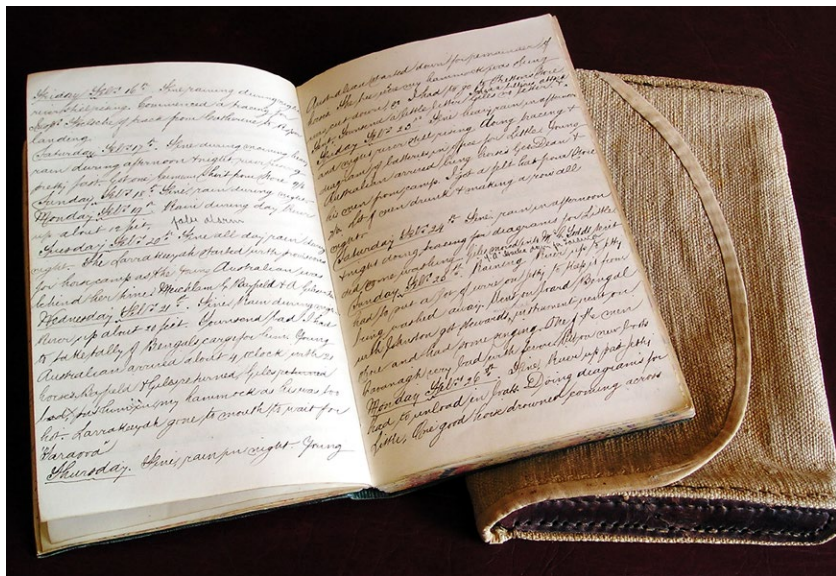 Friday Feby 16th Fine raining during night
river still rising. Commenced a tracing for
Scott. Sketch of track from Catherine to Roper
landing.
Saturday Feby 17th. Fine during morning heavy
rain during afternoon & night river rising
pretty fast. Got one Crimean Shirt from Store 9/6
Sunday Feby 18th Fine rain during night
Monday Feby 19th Rain during day River
up about 12 feet. false alarm
Tuesday Feby 20th Fine all day rain during
night. The Larrakeyah started with provisions
for horse camp as the Young Australian was
behind her time. Mitchlam & Ryfield & A Giles
Wednesday Feby 21st. Fine. Rain during night
River up about 20 feet. Townsend bad I had
to take tally of Bengals cargo for him. Young
Australian arrived about 4 o'clock with 20
horses. Ryfield & Giles returned Giles poisoned
bad, put him in my hammock as he was too
hot. Larrakeyah gone to mouth to wait for
"Taraora"
Thursday. Fine, rain in night. Young
Australian started down for remainder of
horses. The pier my hammock was slung
was cut down so I had to go to the
feet. Immense little Giles is better &
Friday Feby 23rd. Fine heavy rain in afternoon
and night river still rising doing tracing &
diagram of batteries in office for Little. Young
Australian arrived being cross Gee Dean &
his men from camp. I got a felt hat from Store
7/6 lot of men drunk & making a row all
night.
Saturday Feby 24th Fine, rain in afternoon
& night doing tracing for diagrams for Little
did some washing. Giles Mr C. Todds tent
Sunday Feby 25th Raining River up to jetty
had to put a lot of wire on jetty to keep it from
being washed away. Went on board Bengal
with Johnston got Howards, instrument went on
shore and had some singing. One of the men
Cavanagh very bad with fever. Put on new boots
Monday Feby 26th Fine. River up past jetty,
had to unload in boats. Doing diagrams for
Little, One good horse drowned coming across